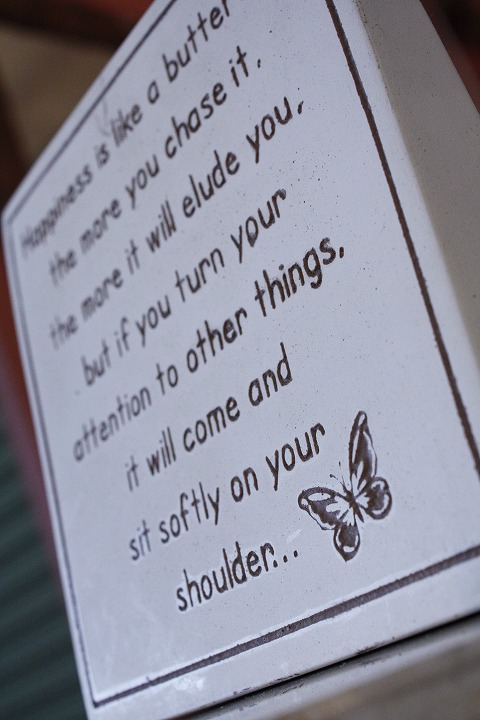 Happiness is like a butter
the more you chase it,
the more it will elude you,
but if you turn your
attention to other things,
it will come and
sit softly on your
shoulder...